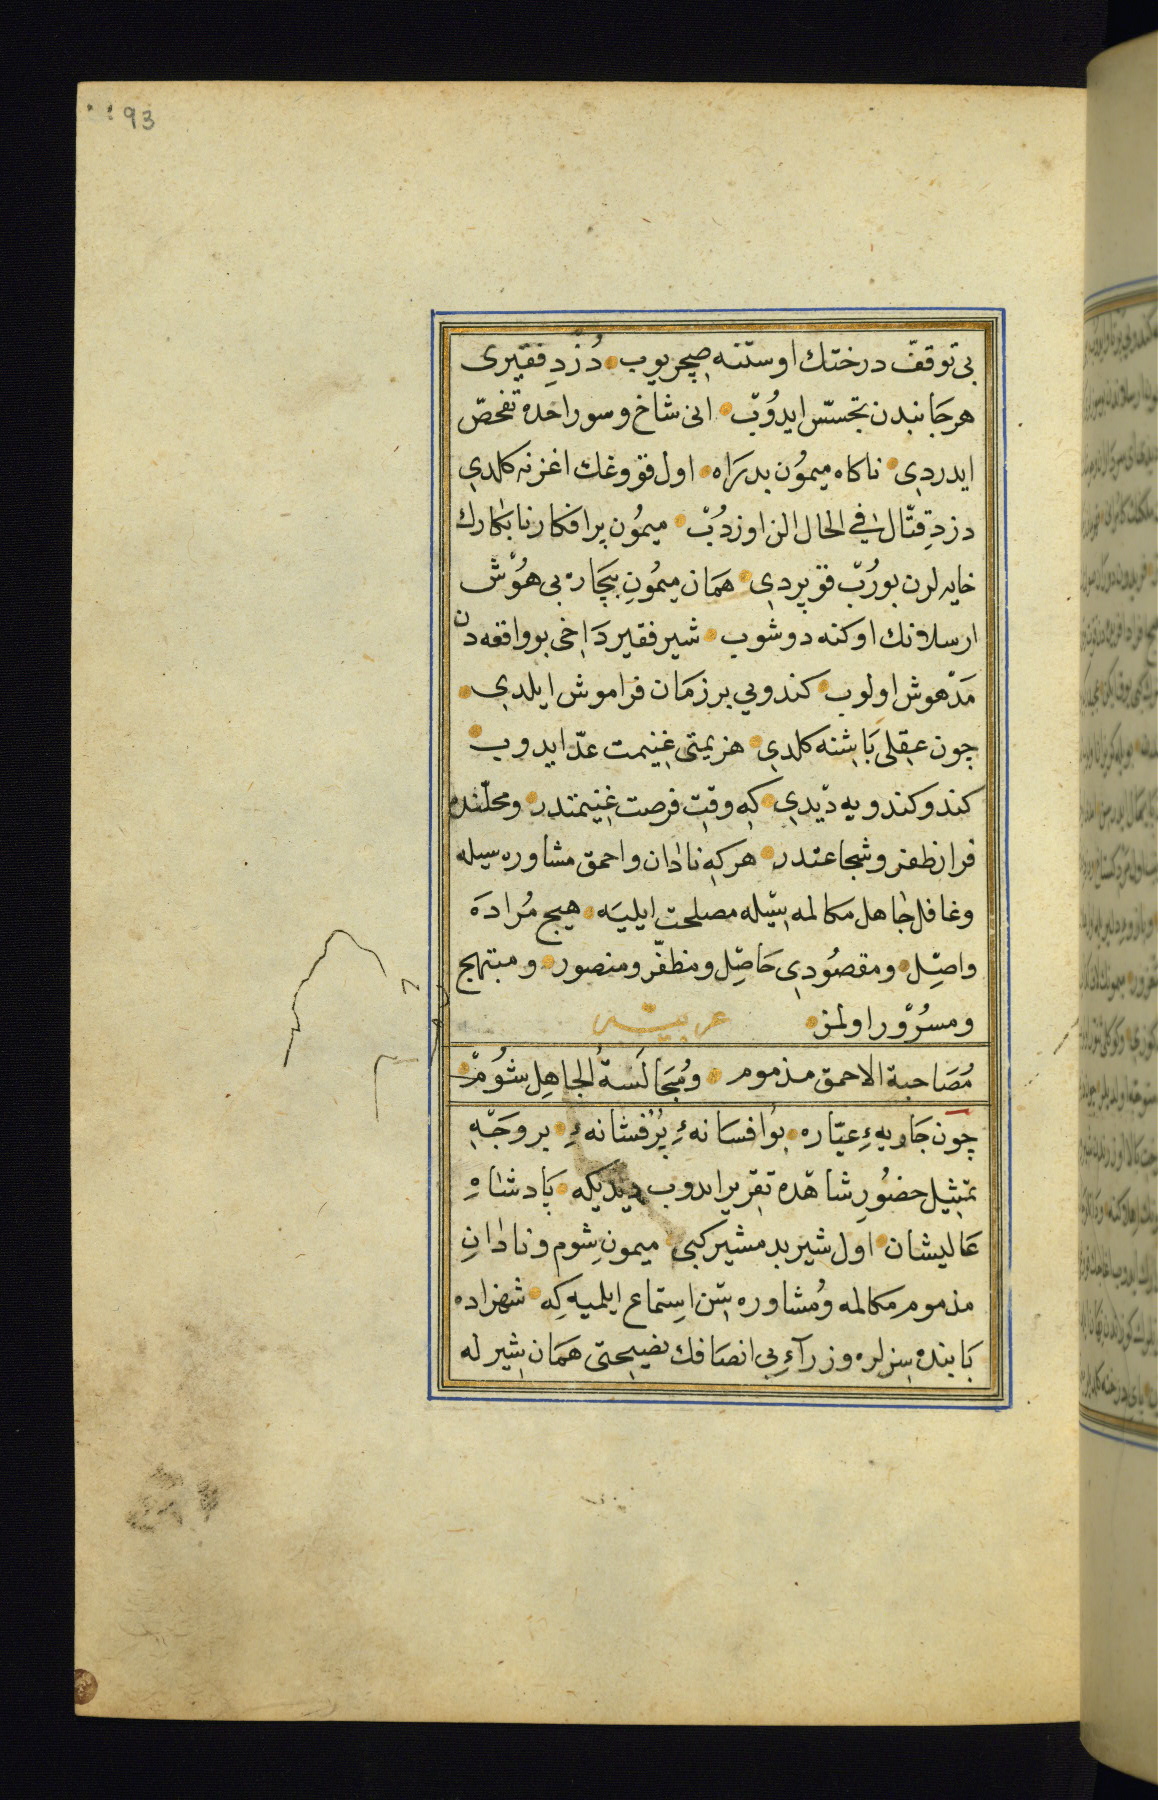 93
بی توقف درختك اوستنه صچریوب دزد فقیری
هر جانبدن تجسّس ایدوب انی شاخ و سوراخده تفحّص
ایدردی ناكاه میمون بدراه اول قووغك اغزنه كلدی
دزد قتّال فی الحال الن اوزدوب میمون پر افكار نابكارك
خایه لرن بوروب قویردی همان میمون بیچاره بی هوش
ارسلانك اوكنه دوشوب شیر فقیر داخی بو واقعه دن
مدهوش اولوب كندویی بر زمان فراموش ایلدی
چون عقلی باشنه كلدی هزیمتی غنیمت عدّ ایدوب
كندو كندویه دیدی كه وقت فرصت غنیمتدر و محلّنده
فرار ظفر و شجاعتدر هر كه نادان و احمق مشاوره سیله
و غافل جاهل مكالمه سیله مصلحت ایلیه هیچ مراده
واصل و مقصودی حاصل و مظفّر و منصور و مبتهج
و مسرور اولمز عربیّه
مُصَاحبة الاحمق مذموم وَمُجَالَسَةُ الجاهِلِ شُوم
چون جاریهء عیّاره بو افسانهء پرفشانهء بر وجه
تمثیل حضور شاهده تقریر ایدوب دیدیكه پادشاه
عالیشان اول شیر بدمشیر كبی میمون شوم و نادان
مذموم مكالمه و مشاوره سن استماع ایلمیه كه شهزاده
بابنده سزلره وزرآء بی انصافك نصیحتی همان شیرله